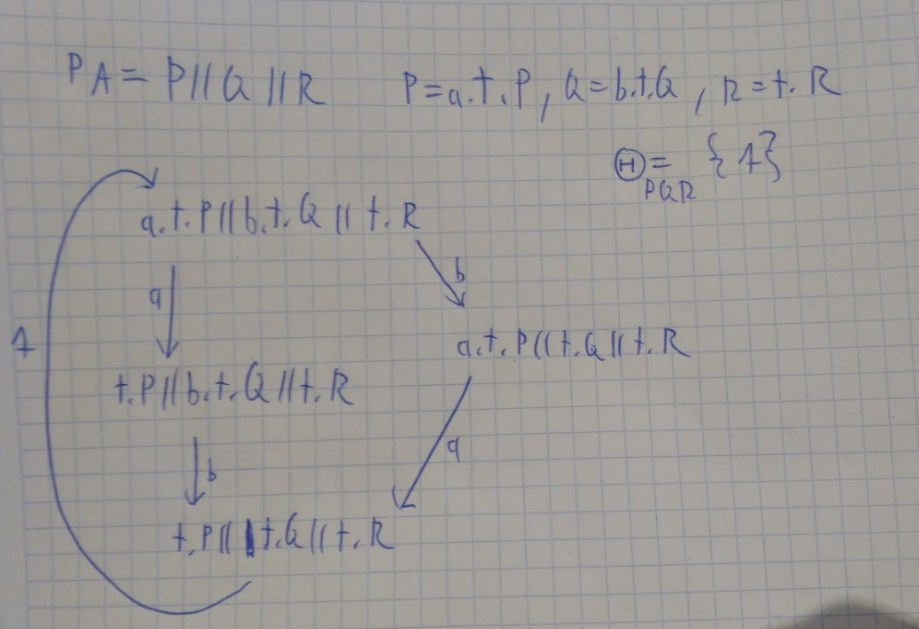 PA = P || Q || R P = a.t.P, Q = b.t.Q, R = t.R
Ⓗ = {1}
PQR
a.t.P || b.t.Q || t.R
a
b
1
a.t.P || t.Q || t.R
t.P || b.t.Q || t.R
b
a
t.P || t.Q || t.R